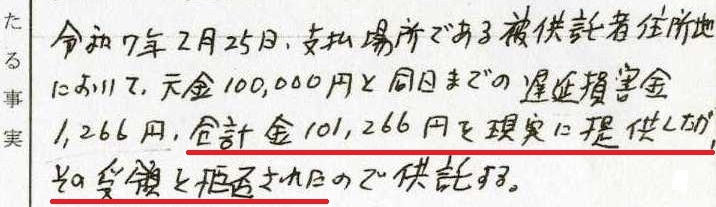 たる事実
令和7年2月25日、支払場所である被供託者住所地
において、元金100,000円と同日までの遅延損害金
1,266円、合計金101,266円を現実に提供したが、
その受領を拒否されたので供託する。